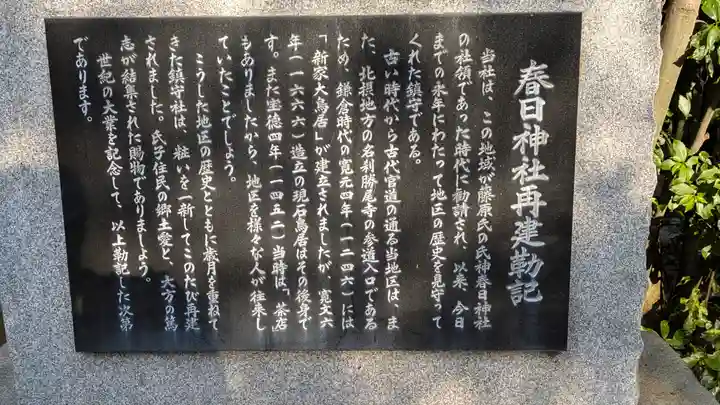 春日神社再建勒記
当社は、この地域が藤原氏の氏神春日神社
の社領であった時代に勧請され、以来、今日
までの永年にわたって地区の歴史を見守って
くれた鎮守である。
古い時代から古代官道の通る当地区は、ま
た、北摂地方の名刹勝尾寺の参道入口である
ため、鎌倉時代の寛元四年（一二四六）には
「新家大鳥居」が建立されましたが、寛文六
年（一六六六）造立の現石鳥居はその後身で
す。また宝徳四年（一四五二）当時は、茶店
もありましたから、地区を様々な人が往来し
ていたことでしょう。
こうした地区の歴史とともに歳月を重ねて
きた鎮守社は、粧いを一新してこのたび再建
されました。氏子住民の郷土愛と、大方の篤
志が結集された賜物でありましょう。
世紀の大業を記念して、以上勒記した次第
であります。